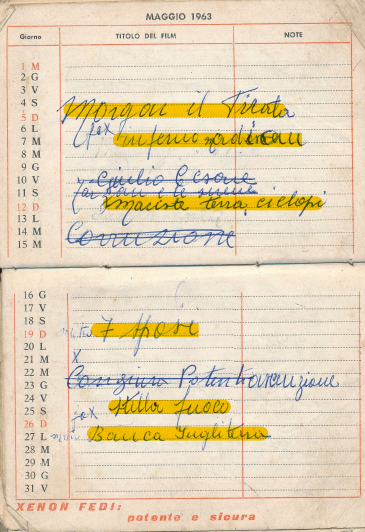 MAGGIO 1963
Giorno TITOLO DEL FILM NOTE
1 M
2 G
3 V
4 S Morgan il Pirata
5 D
6 L fox
7 M inferno
8 M
9 G
10 V Giulio Cesare
11 S
12 D Maciste terra ciclopi
13 L
14 M Corruzione
15 M
16 G
17 V
18 S
19 D metro 7 spose
20 L
21 M X
22 M
23 G Congiura Potenti
24 V
25 S fox Stella fuoco
26 D
27 L Banca Inghilterra
28 M
29 M
30 G
31 V
XENON FEDI:
potente e sicura